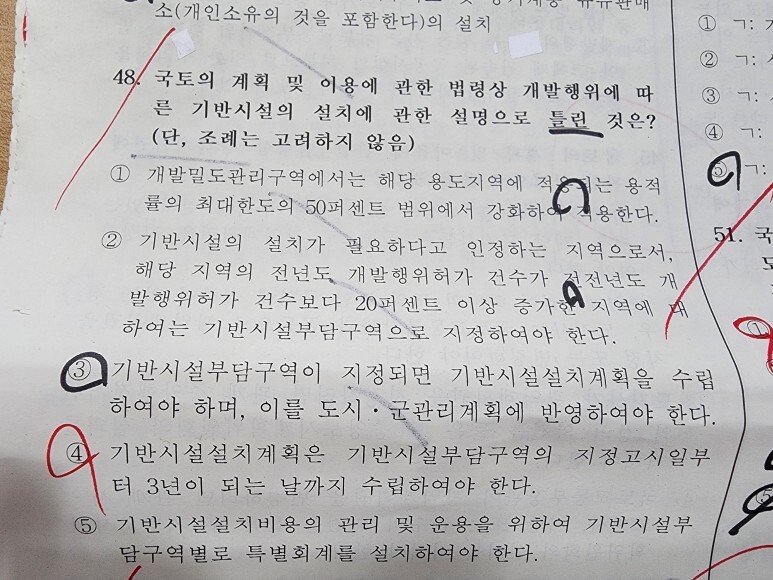 소(개인소유의 것을 포함한다)의 설치
48. 국토의 계획 및 이용에 관한 법령상 개발행위에 따
른 기반시설의 설치에 관한 설명으로 틀린 것은?
(단, 조례는 고려하지 않음)
① 개발밀도관리구역에서는 해당 용도지역에 적용되는 용적
률의 최대한도의 50퍼센트 범위에서 강화하여 적용한다.
② 기반시설의 설치가 필요하다고 인정하는 지역으로서,
해당 지역의 전년도 개발행위허가 건수가 전전년도 개
발행위허가 건수보다 20퍼센트 이상 증가한 지역에 대
하여는 기반시설부담구역으로 지정하여야 한다.
③ 기반시설부담구역이 지정되면 기반시설설치계획을 수립
하여야 하며, 이를 도시·군관리계획에 반영하여야 한다.
④ 기반시설설치계획은 기반시설부담구역의 지정고시일부
터 3년이 되는 날까지 수립하여야 한다.
⑤ 기반시설설치비용의 관리 및 운용을 위하여 기반시설부
담구역별로 특별회계를 설치하여야 한다.
① ㄱ:
② ㄱ:
③ ㄱ:
④ ㄱ:
⑤ ㄱ:
51. 국